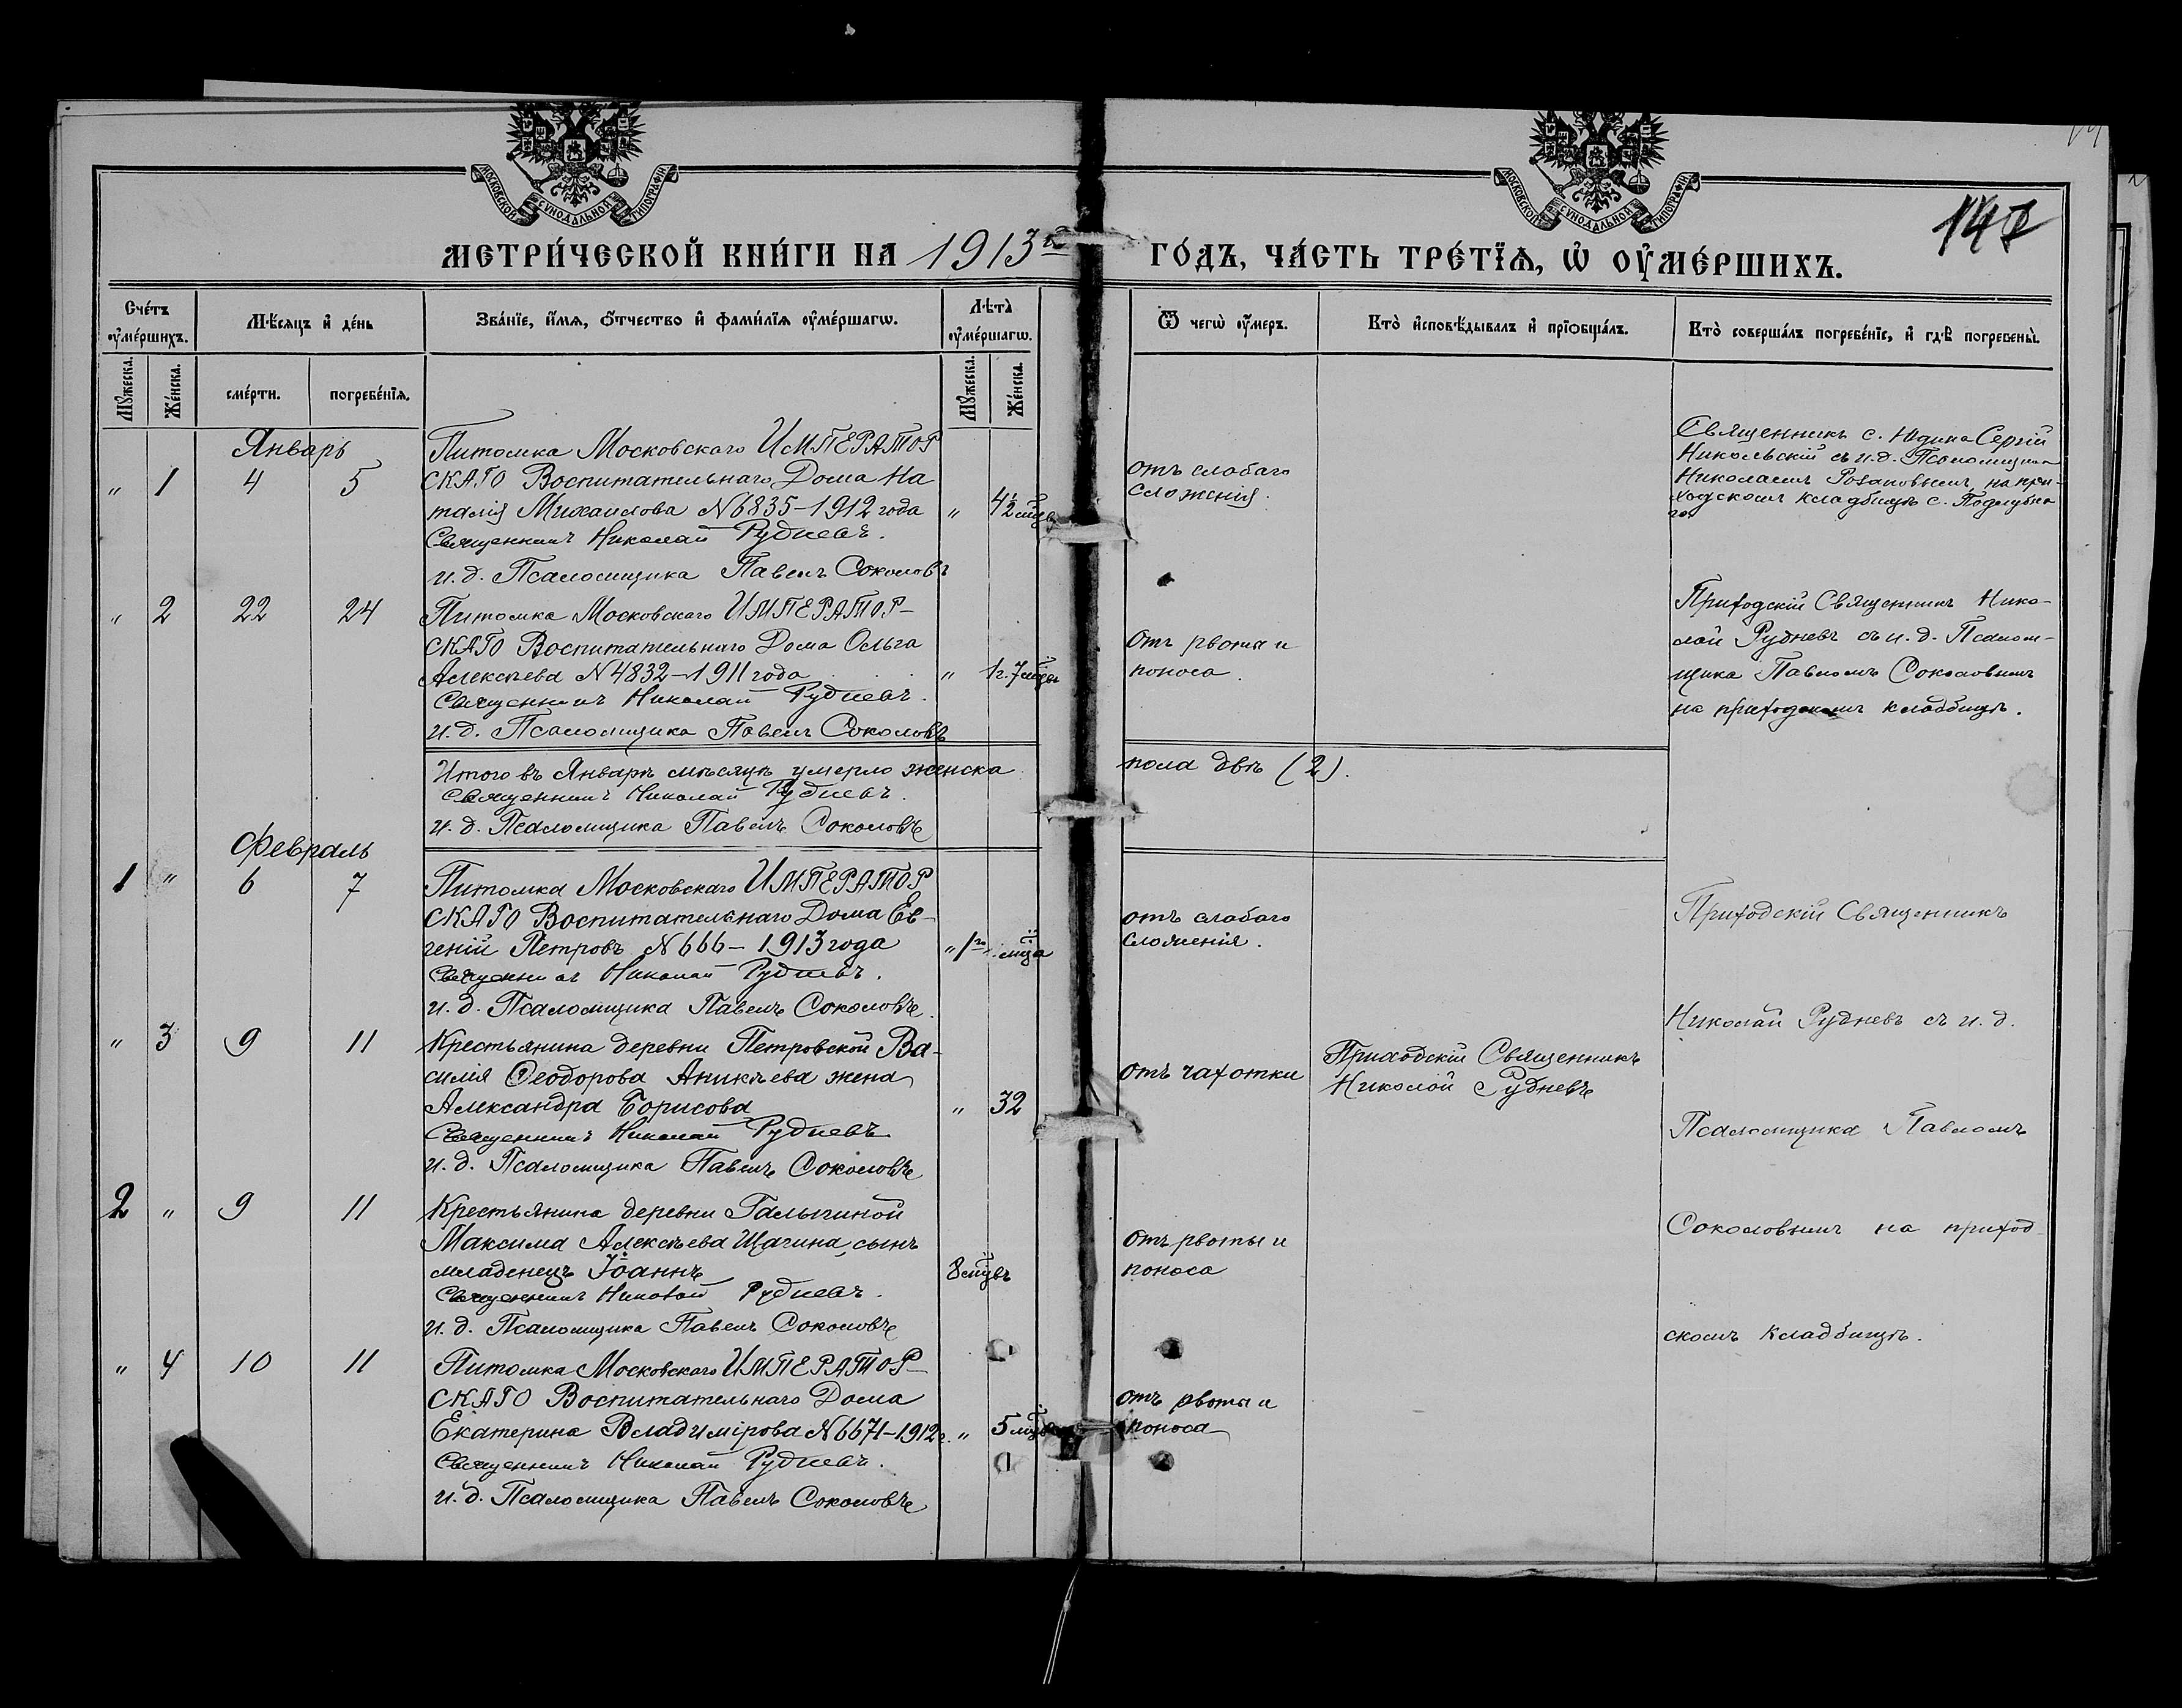 МОСКОВСКОЙ СУНОДАЛЬНОЙ ТИПОГРАФІИ
МОСКОВСКОЙ СУНОДАЛЬНОЙ ТИПОГРАФІИ
147
МЕТРИ́ЧЕСКОЙ КНИ́ГИ НА 1913й ГО́ДЪ, ЧА́СТЬ ТРЕ́ТЇѦ, Ѡ҆ ОУ҆МЕ́РШИХЪ.
Сче́тъ оу҆ме́ршихъ.
Мѣ́сяцъ и҆ де́нь
Зва́нїе, и҆́мя, ѻ҆́тчество и҆ фами́лїя оу҆ме́ршагѡ.
Лѣ́та оу҆ме́ршагѡ.
Ѿ чегѡ̀ оу҆́меръ.
Кто̀ и҆сповѣ́дывалъ и҆ прїѻбща́лъ.
Кто̀ соверша́лъ погребе́нїе, и҆ гдѣ̀ погребены̀.
Мꙋ́жеска.
Же́нска.
сме́рти.
погребе́нїя.
Мꙋ́жеска.
Же́нска.
Январь
" 1 4 5
Питомка Московскаго ИМПЕРАТОР
СКАГО Воспитательнаго Дома На
талія Михаилова N 6835–1912 года
Священникъ Николай Рудневъ.
и. д. Псаломщика Павелъ Соколовъ
"
отъ слабаго
сложенія.
Священникъ с. Юдина Сергій
Никольскій съ и. д. Псаломщика
Николаемъ Розановымъ на при-
ходскомъ кладбищѣ с.
" 2 22 24
Питомка Московскаго ИМПЕРАТОР-
СКАГО Воспитательнаго Дома Ольга
Алексѣева N 4832–1911 года
Священникъ Николай Рудневъ.
и. д. Псаломщика Павелъ Соколовъ
" 1 г. 7 мцвъ
Отъ рвоты и
поноса.
Приходскій Священникъ Нико-
лай Рудневъ съ и. д. Псалом-
щика Павломъ Соколовымъ
на приходскомъ кладбищѣ.
Итого въ Январѣ мѣсяцѣ умерло женска пола двѣ (2).
Священникъ Николай Рудневъ.
и. д. Псаломщика Павелъ Соколовъ
Февраль
1 " 6 7
Питомка Московскаго ИМПЕРАТОР
СКАГО Воспитательнаго Дома Ев-
геній Петровъ N 666–1913 года
Священникъ Николай Рудневъ.
и. д. Псаломщика Павелъ Соколовъ
отъ слабаго
сложенія.
Приходскій Священникъ
Николай Рудневъ съ и. д.
" 3 9 11
Крестьянина деревни Петровской Ва-
силія Ѳеодорова Аникѣева жена
Александра Борисова
Священникъ Николай Рудневъ
и. д. Псаломщика Павелъ Соколовъ
" 32
отъ чахотки
Приходскій Священникъ
Николай Рудневъ
Псаломщика Павломъ
2 " 9 11
Крестьянина деревни Галыгиной
Максима Алексѣева Щагина, сынъ
младенецъ Іоаннъ
Священникъ Николай Рудневъ.
и. д. Псаломщика Павелъ Соколовъ
8 мцвъ
отъ рвоты и
поноса
Соколовымъ на приход
скомъ кладбищѣ.
" 4 10 11
Питомка Московскаго ИМПЕРАТОР-
СКАГО Воспитательнаго Дома
Екатерина Владимірова N 6671–1912 г.
Священникъ Николай Рудневъ.
и. д. Псаломщика Павелъ Соколовъ
" 5 мцвъ
отъ рвоты и
поноса